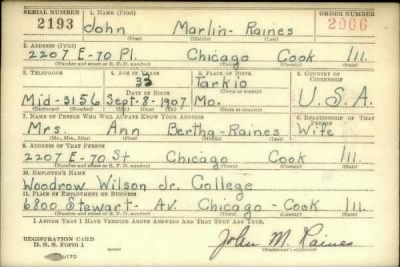 SERIAL NUMBER 1. NAME (Print) ORDER NUMBER
2193 John Marlin- Raines 2006
(First) (Middle) (Last)
2. ADDRESS (Print)
2207 E-70 Pl. Chicago Cook Ill.
(Number and street or R. F. D. number) (Town) (County) (State)
3. TELEPHONE 4. AGE IN YEARS 5. PLACE OF BIRTH 6. COUNTRY OF CITIZENSHIP
33 Tarkio
DATE OF BIRTH
Mid-3156 Sept-8-1907 Mo. U.S.A.
7. NAME OF PERSON WHO WILL ALWAYS KNOW YOUR ADDRESS 8. RELATIONSHIP OF THAT PERSON
Mrs. Ann Bertha-Raines Wife
(Mr., Mrs., Miss) (First) (Middle) (Last)
9. ADDRESS OF THAT PERSON
2207 E-70 St Chicago Cook Ill.
(Number and street or R. F. D. number) (Town) (County) (State)
10. EMPLOYER'S NAME
Woodrow Wilson Jr. College
11. PLACE OF EMPLOYMENT OR BUSINESS
6800 Stewart-Av. Chicago-Cook Ill.
(Number and street or R. F. D. number) (Town) (County) (State)
I AFFIRM THAT I HAVE VERIFIED ABOVE ANSWERS AND THAT THEY ARE TRUE.
REGISTRATION CARD
D. S. S. FORM 1 John M. Raines
(Registrant's signature)